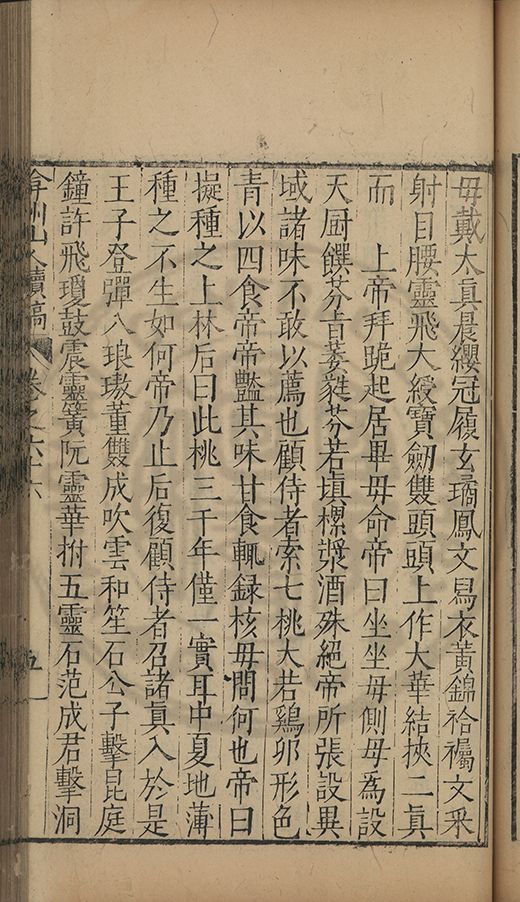 母戴太真晨纓冠履玄璚鳳文舄衣黃錦袷𧞤文采
射目腰靈飛大綬寶劒雙頭頭上作大華結挾二真
而　上帝拜跪起居畢母命帝曰坐坐母側母為設
天厨饌芬旨萎蕤芬若填樏漿酒殊絕帝所張設異
域諸味不敢以薦也顧侍者索七桃大若鷄卵形色
青以四食帝帝豔其味甘食輒録核母問何也帝曰
擬種之上林后曰此桃三千年僅一實耳中夏地薄
種之不生如何帝乃止后復顧侍者召諸真入於是
王子登彈八琅璈董雙成吹雲和笙石公子擊昆庭
鐘許飛瓊鼓震靈簧阮靈華拊五靈石范成君擊洞
弇州山人續稿　卷之六十六　五